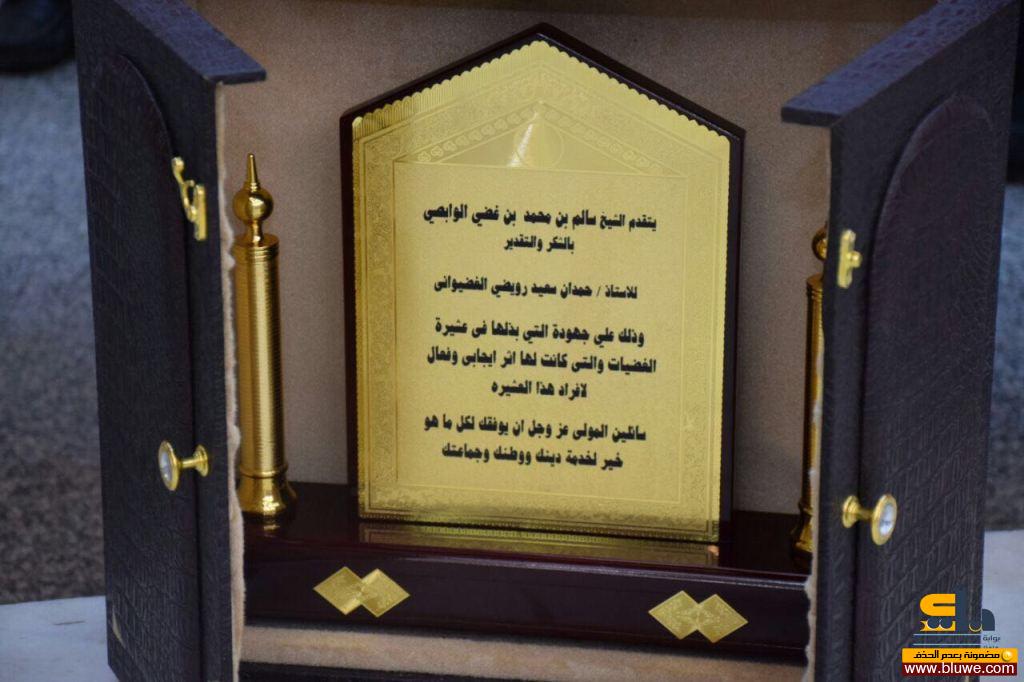 يتقدم الشيخ سالم بن محمد بن غضي الوابصي
بالشكر والتقدير
للاستاذ / حمدان سعيد رويضي الغضيوانى
وذلك علي جهودة التي بذلها فى عشيرة
الغضيات والتى كانت لها اثر ايجابى وفعال
لافراد هذا العشيره
سائلين المولى عز وجل ان يوفقك لكل ما هو
خير لخدمة دينك ووطنك وجماعتك
بوابة
مضمونة بعدم الحذف
www.bluwe.com